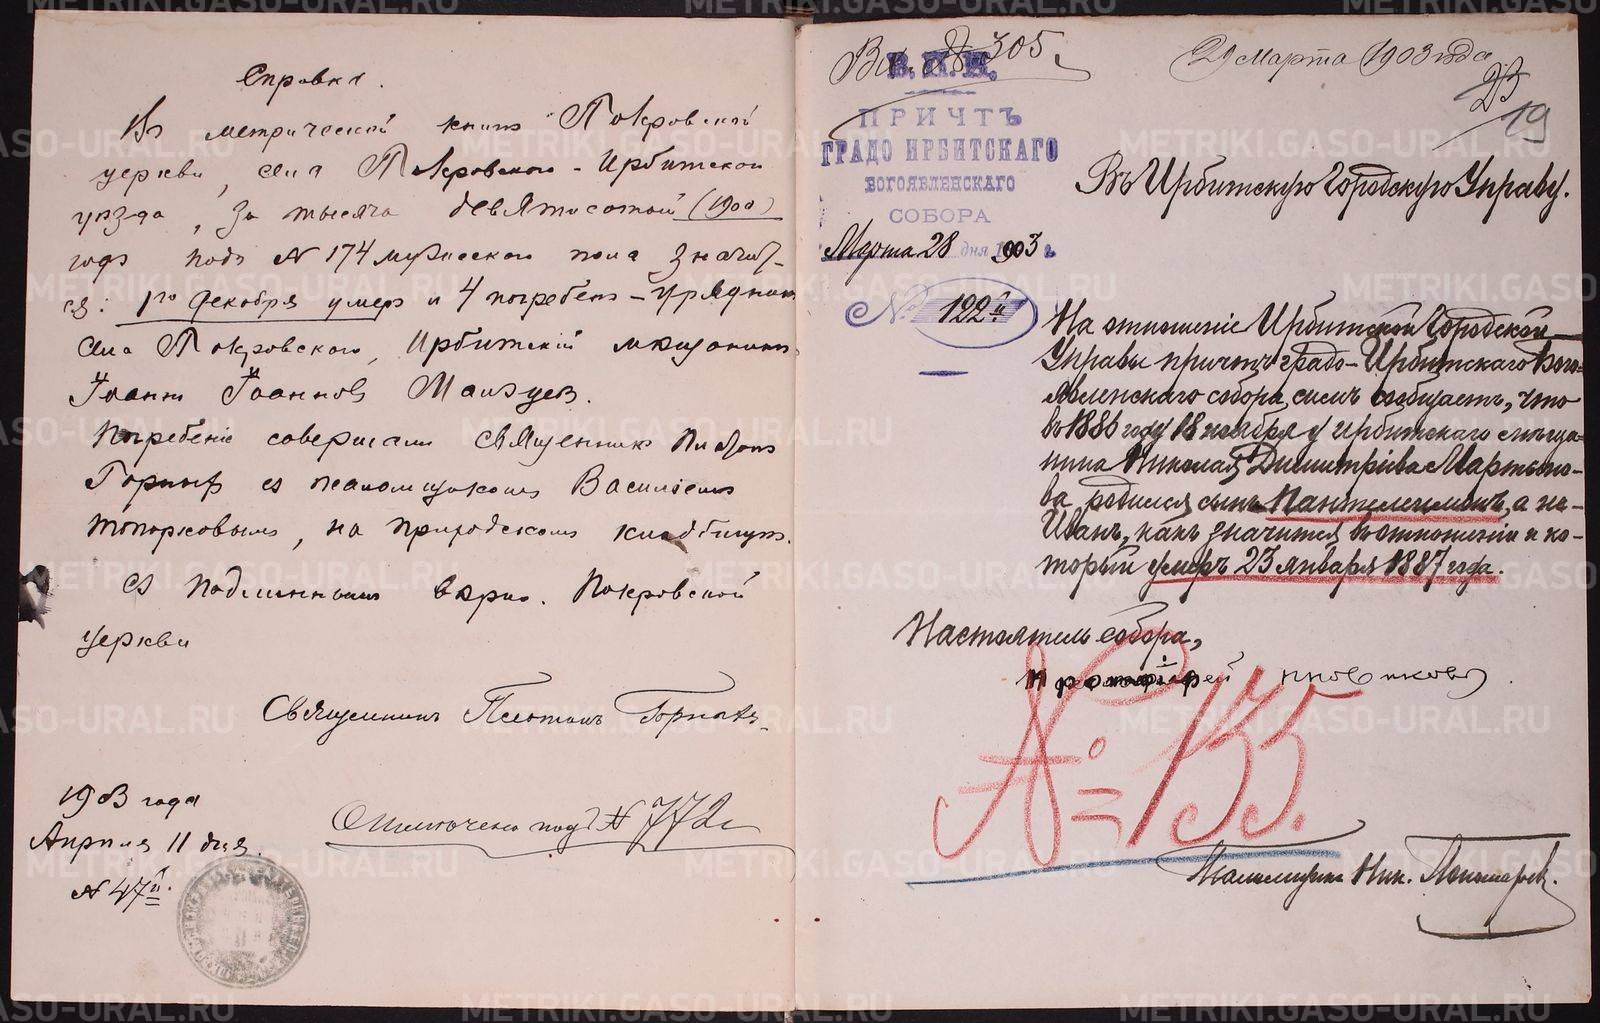 Справка.
Въ метрической книгѣ Покровской
церкви, села Покровскаго - Ирбитскаго
уѣзда, за тысяча девятисотый (1900)
годъ подъ № 174 мужескаго пола значит-
ся: 1го декабря умеръ и 4 погребенъ - урядникъ
села Покровскаго, Ирбитскій мѣщанинъ
Іоаннъ Іоанновъ
Погребеніе совершали священникъ Платонъ
Горныхъ съ псаломщикомъ Василіемъ
Топорковымъ, на приходскомъ кладбищѣ.
Съ подлиннымъ вѣрно. Покровской
церкви
Священникъ Платонъ Горныхъ.
1903 года
Апрѣля 11 дня.
№ 47й.
подъ № 772
Вх. № 305.
29 Марта 1903 года
23
19
В.П.И.
ПРИЧТЪ
ГРАДО ИРБИТСКАГО
БОГОЯВЛЕНСКАГО
СОБОРА
Марта 28 дня 1903 г.
№ 122й
Въ Ирбитскую Городскую Управу.
На отношеніе Ирбитской Городской
Управы причтъ градо-Ирбитскаго Бого-
явленскаго собора симъ сообщаетъ, что
въ 1886 году 18 ноября у ирбитскаго мѣща-
нина Николая Димитріева Мартыно-
ва родился сынъ Пантелеимонъ, а не
Иванъ, какъ значится въ отношеніи и ко-
торый умеръ 23 января 1887 года.
Настоятель собора,
Протоіерей
№ 155.
Псаломщикъ Ник. Пономаревъ.
METRIKI.GASO-URAL.RU